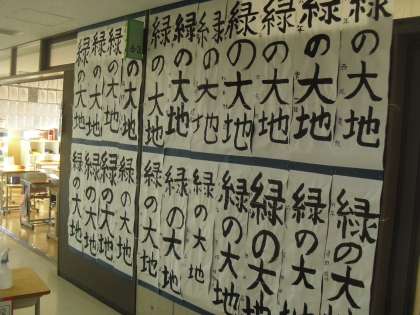 緑の大地
緑の大地
緑の大地
緑の大地
緑の大地
緑の大地
緑の大地
緑の大地
緑の大地
緑の大地
緑の大地
緑の大地
緑の大地
緑の大地
緑の大地
緑の大地
緑の大地
緑の大地
緑の大地
緑の大地
緑の大地
緑の大地